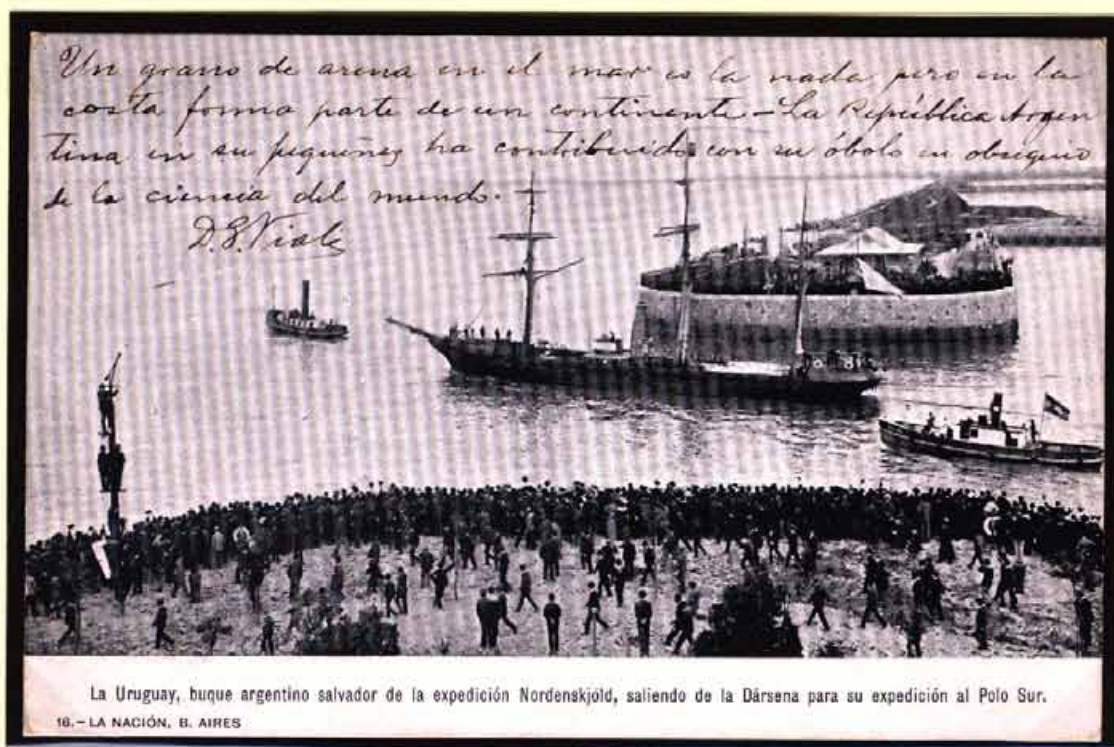 Un grano de arena en el mar es la nada pero en la
costa forma parte de un continente - La República Argen
tina en su pequeñez ha contribuido con su óbolo en obsequio
de la ciencia del mundo.
D. E. Viale
La Uruguay, buque argentino salvador de la expedición Nordenskjöld, saliendo de la Dársena para su expedición al Polo Sur.
16.-LA NACIÓN, B. AIRES